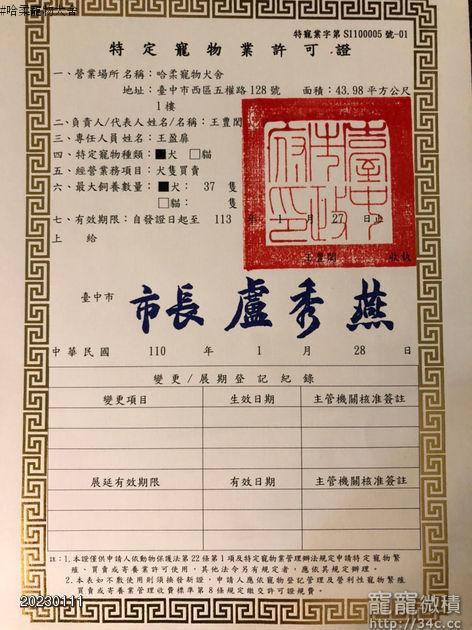 #哈柔寵物犬舍
特寵業字第S1100005號-01
特定寵物業許可證
一、營業場所名稱：哈柔寵物犬舍
地址：臺中市西區五權路128號 面積：43.98平方公尺
1樓
二、負責人/代表人姓名/名稱：王豊閣
三、專任人員姓名：王盈扉
四、特定寵物種類：■犬 □貓
五、經營業務項目：犬隻買賣
六、最大飼養數量：■犬： 37 隻
□貓： 隻
七、有效期限：自發證日起至 113 年 1 月 27 日止
上 給
王豊閣 收執
臺中市政府印
臺中市
市長 盧秀燕
中華民國 110 年 1 月 28 日
變更/展期登記紀錄
變更項目 生效日期 主管機關核准簽註
展延有效期限 有效日期 主管機關核准簽註
註：1.本證僅供申請人依動物保護法第22條第1項及特定寵物業管理辦法規定申請特定寵物繁
殖、買賣或寄養業許可使用，其他法令另有規定者，應依其規定辦理。
2.本表如不敷使用則須換發新證，申請人應依寵物登記管理及營利性寵物繁殖
買賣或寄養業管理收費標準第8條規定繳交許可證規費。
20230111
寵寵微積
http://34c.cc